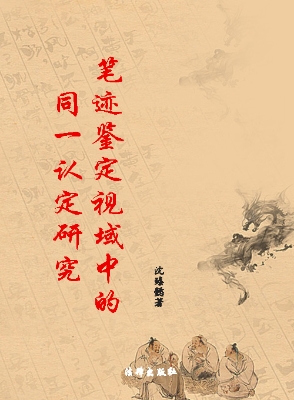 笔迹鉴定视域中的
同一认定研究
沈臻懿著
法律出版社